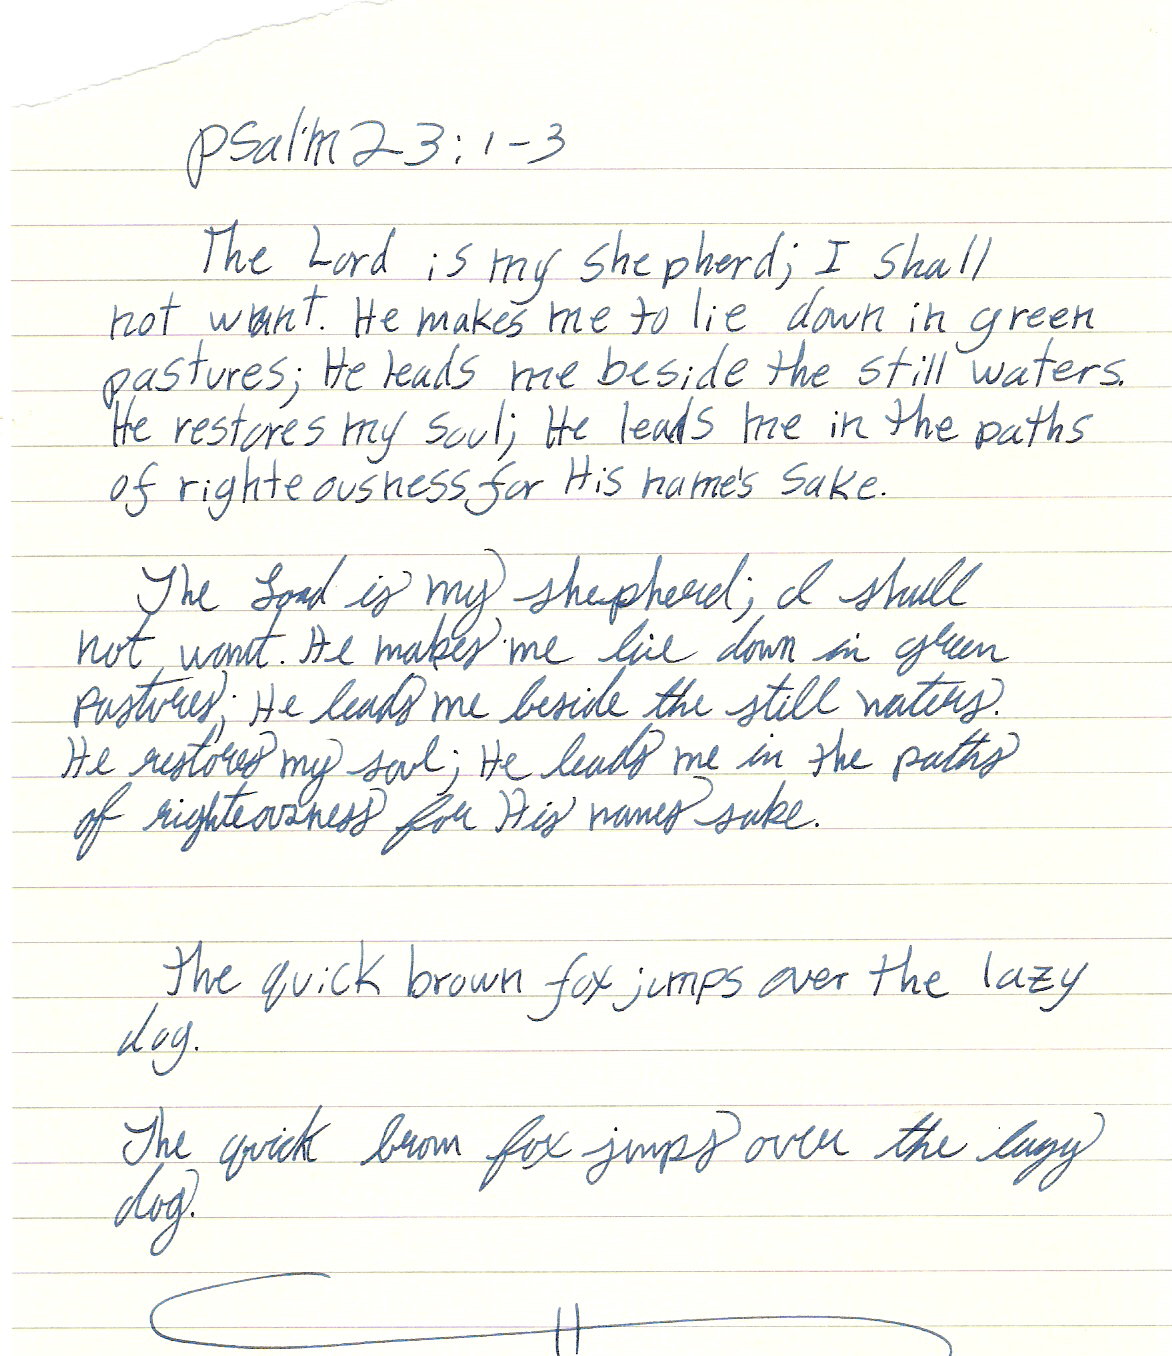 Psalm 23:1-3
The Lord is my shepherd; I shall
not want. He makes me to lie down in green
pastures; He leads me beside the still waters.
He restores my soul; He leads me in the paths
of righteousness for His name's sake.
The Lord is my shepherd; I shall
not want. He makes me lie down in green
pastures; He leads me beside the still waters.
He restores my soul; He leads me in the paths
of righteousness for His names sake.
The quick brown fox jumps over the lazy
dog.
The quick brown fox jumps over the lazy
dog.